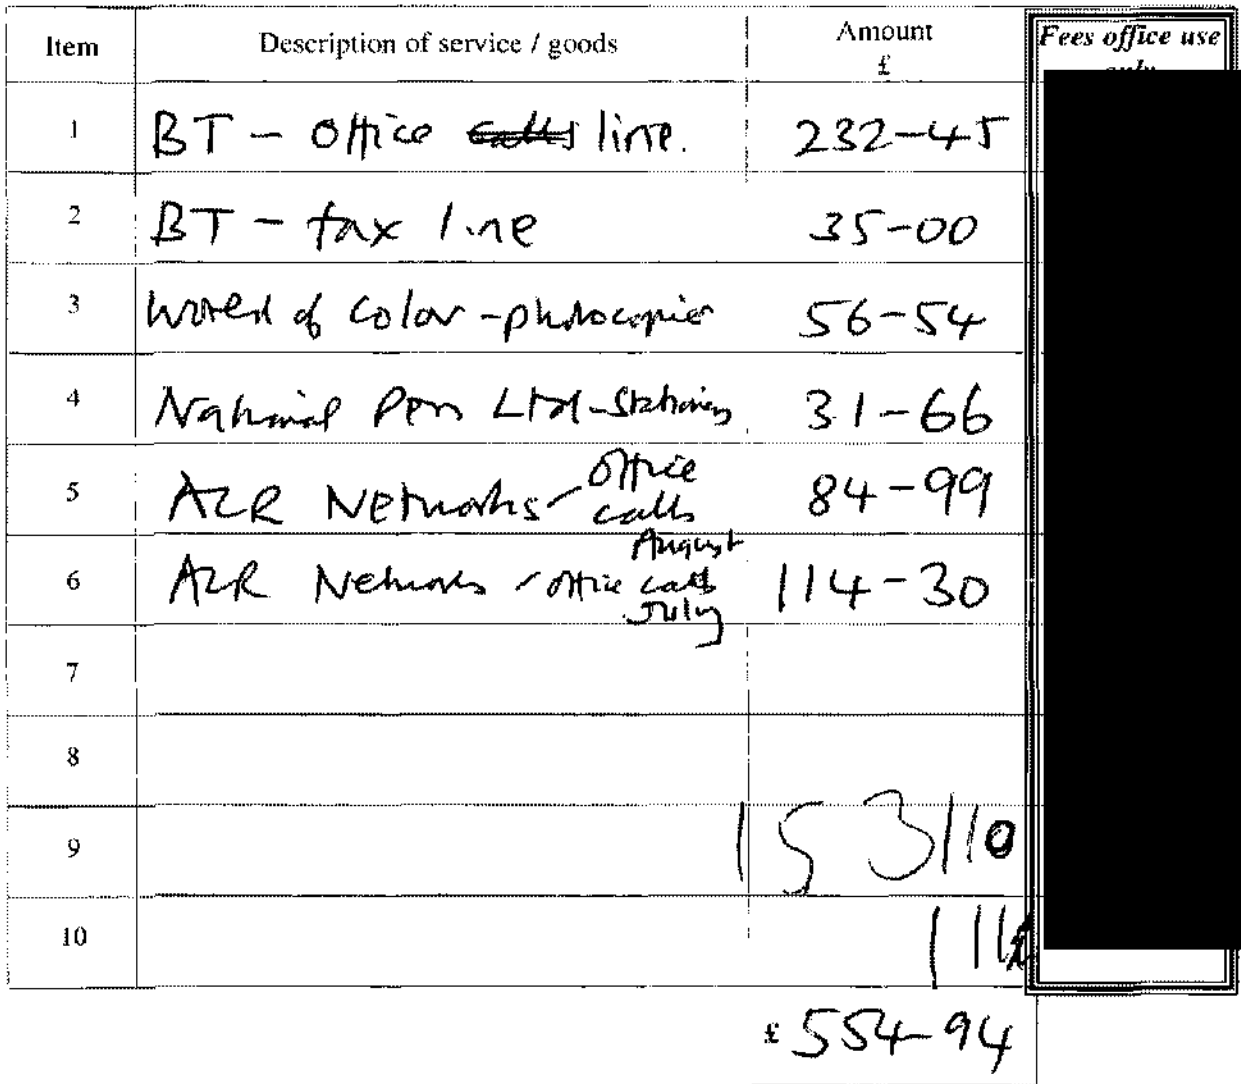 Item Description of service / goods Amount £ Fees office use only
1 BT - Office calls line. 232-45
2 BT - fax line 35-00
3 World of Color - photocopier 56-54
4 National Pen Ltd - Stationery 31-66
5 A2R Networks - office calls August 84-99
6 A2R Networks - office calls July 114-30
7
8
9 153110
10
£ 554-94